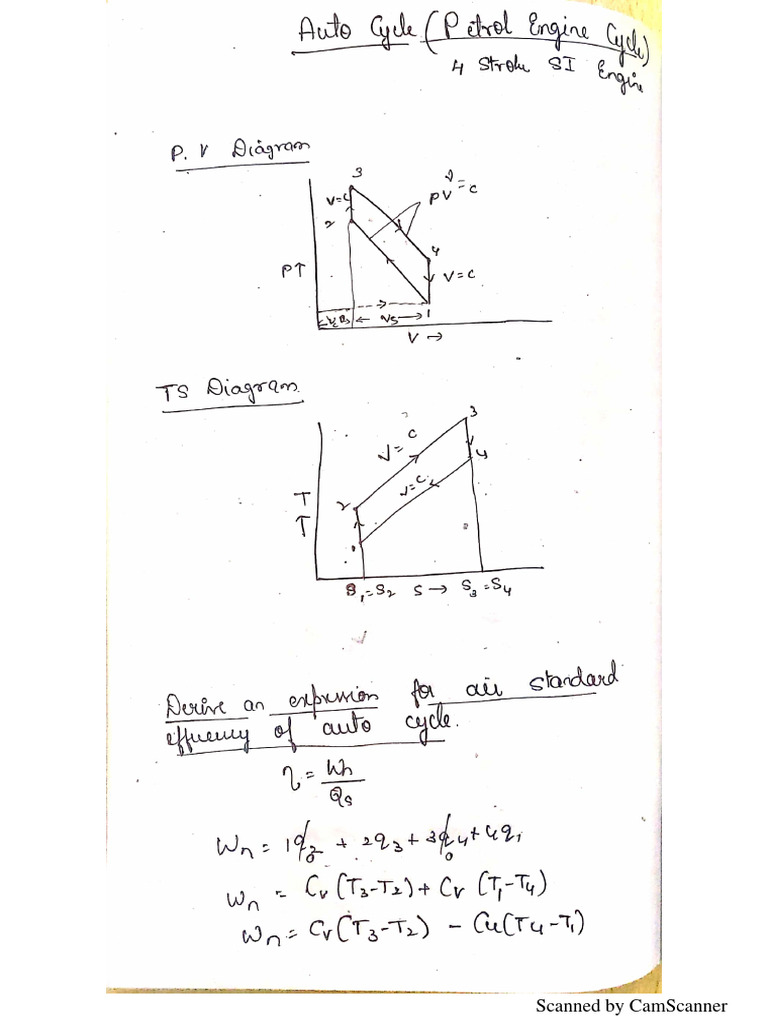 Auto Cycle (Petrol Engine Cycle)
4 Stroke SI Engine
P. V Diagram
3
V=C
PV^γ=C
2
4
P↑
V=C
Vs
1
V →
TS Diagram.
3
V=C
4
V=C
2
T
↑
1
S1=S2 S → S3=S4
Derive an expression for air standard
effuency of auto cycle.
η = Wn
Qs
Wn = 1q2 + 2q3 + 3q4 + 4q1
0
Wn = Cv (T3-T2) + Cv (T1-T4)
Wn = Cv (T3-T2) - Cv (T4-T1)
Scanned by CamScanner